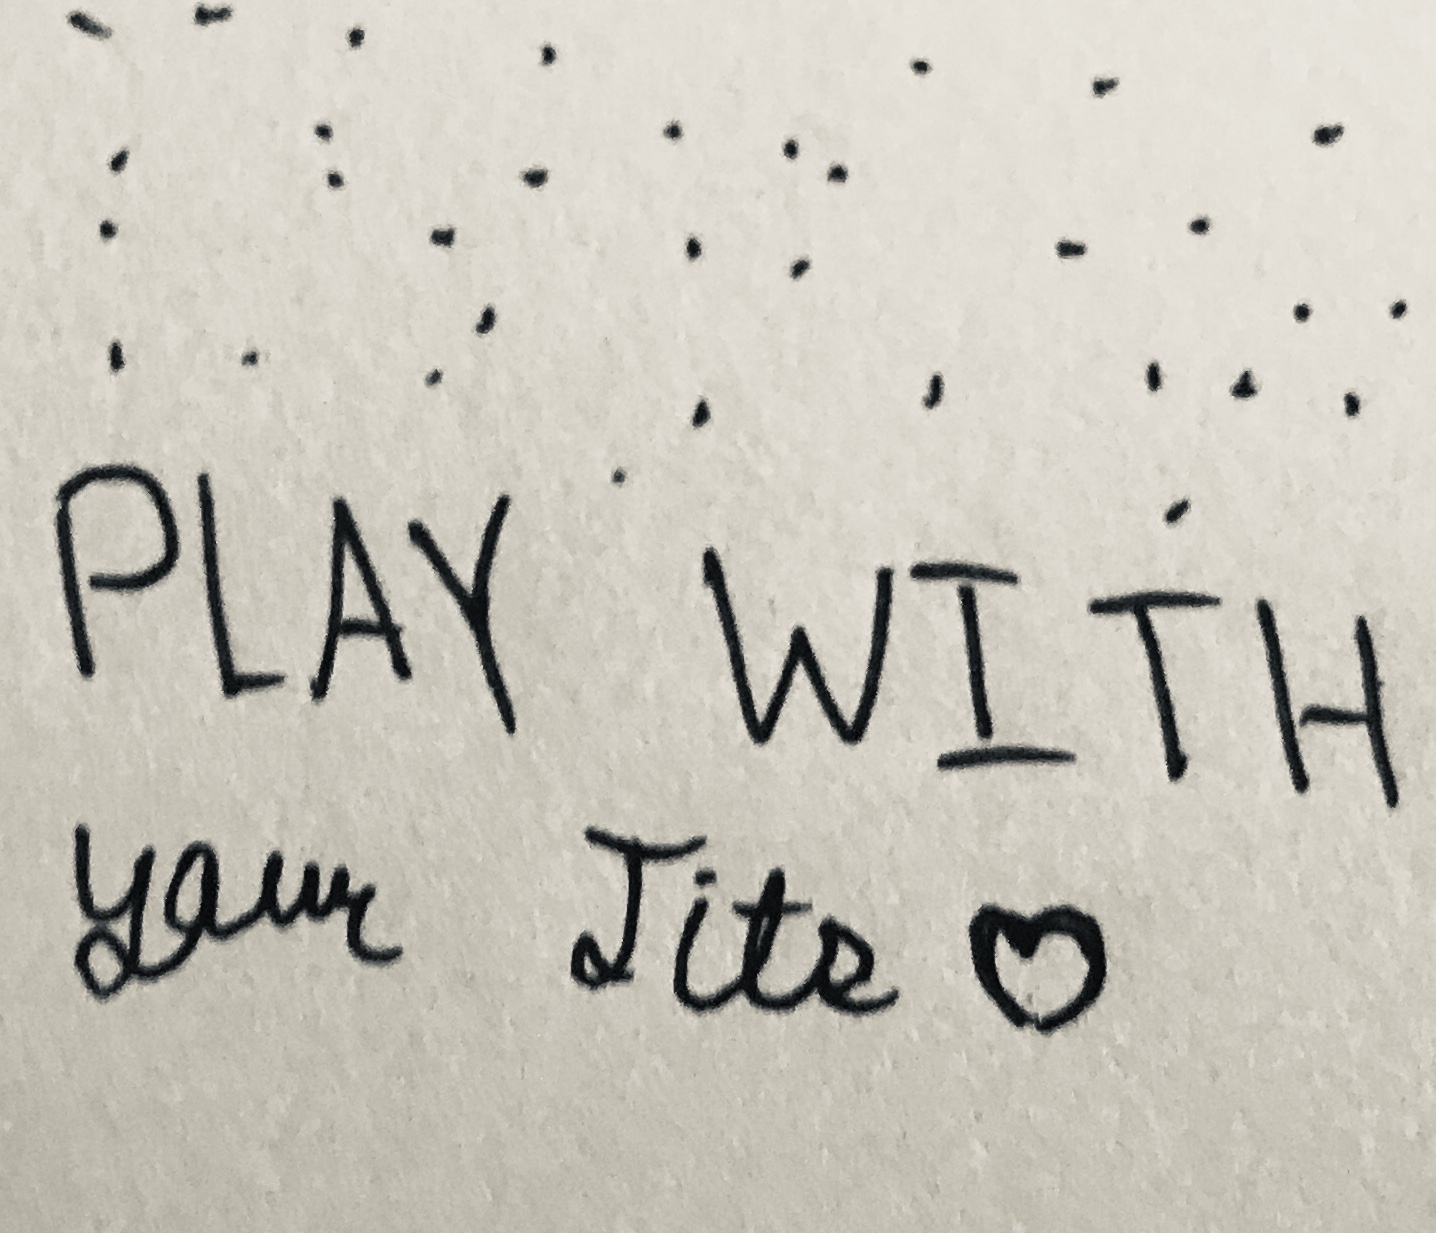 PLAY WITH
your Tits ♡